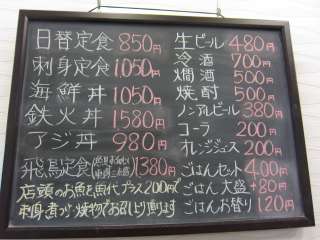 日替定食 850円
刺身定食 1050円
海鮮丼 1050円
鉄火丼 1580円
アジ丼 980円
飛鳥定食 1380円
店頭のお魚を魚代プラス200円で
刺身・煮つけ・焼物でお召し上り頂けます
生ビール 480円
冷酒 700円
燗酒 500円
焼酎 500円
ノンアルビール 380円
コーラ 200円
オレンジジュース 200円
ごはんセット 400円
ごはん大盛 +80円
ごはんお替り 120円